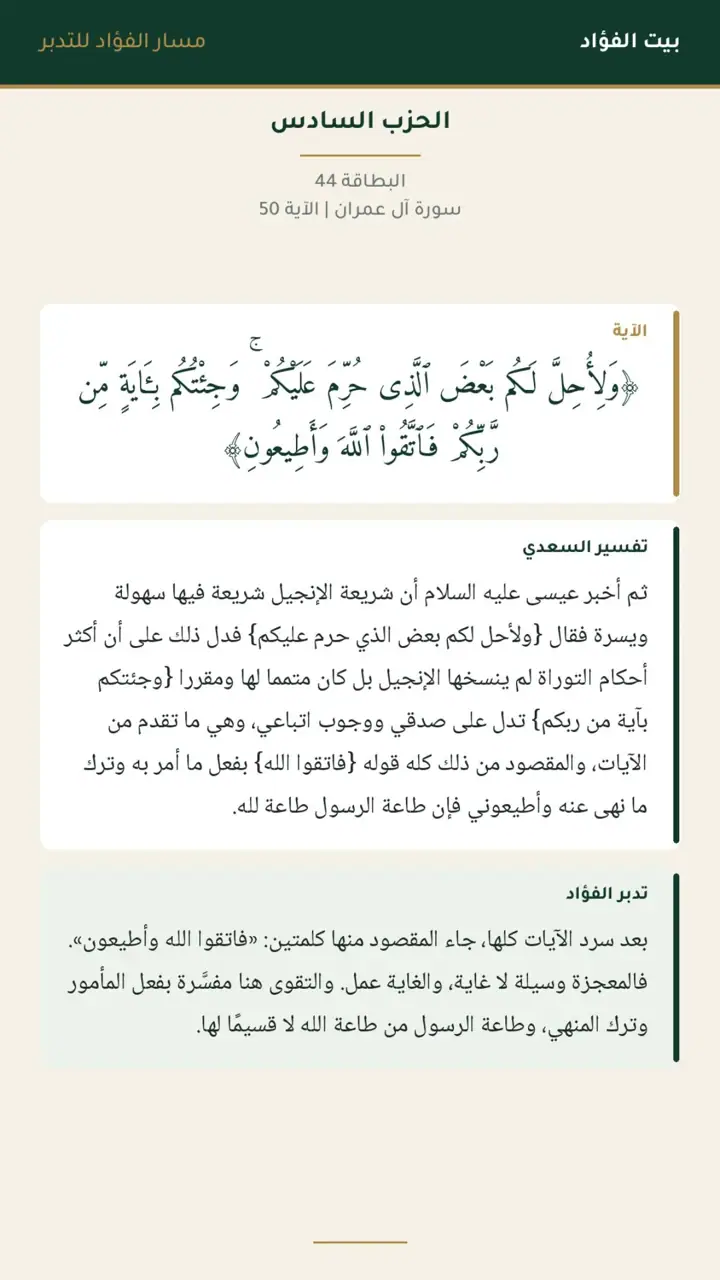 بيت الفؤاد
مسار الفؤاد للتدبر
الحزب السادس
البطاقة 44
سورة آل عمران | الآية 50
الآية
﴿وَلِأُحِلَّ لَكُم بَعْضَ ٱلَّذِى حُرِّمَ عَلَيْكُمْ ۚ وَجِئْتُكُم بِـَٔايَةٍ مِّن
رَّبِّكُمْ فَٱتَّقُوا۟ ٱللَّهَ وَأَطِيعُونِ﴾
تفسير السعدي
ثم أخبر عيسى عليه السلام أن شريعة الإنجيل شريعة فيها سهولة
ويسرة فقال {ولأحل لكم بعض الذي حرم عليكم} فدل ذلك على أن أكثر
أحكام التوراة لم ينسخها الإنجيل بل كان متمما لها ومقررا {وجئتكم
بآية من ربكم} تدل على صدقي ووجوب اتباعي، وهي ما تقدم من
الآيات، والمقصود من ذلك كله قوله {فاتقوا الله} بفعل ما أمر به وترك
ما نهى عنه وأطيعوني فإن طاعة الرسول طاعة لله.
تدبر الفؤاد
بعد سرد الآيات كلها، جاء المقصود منها كلمتين: «فاتقوا الله وأطيعون».
فالمعجزة وسيلة لا غاية، والغاية عمل. والتقوى هنا مفسَّرة بفعل المأمور
وترك المنهي، وطاعة الرسول من طاعة الله لا قسيمًا لها.